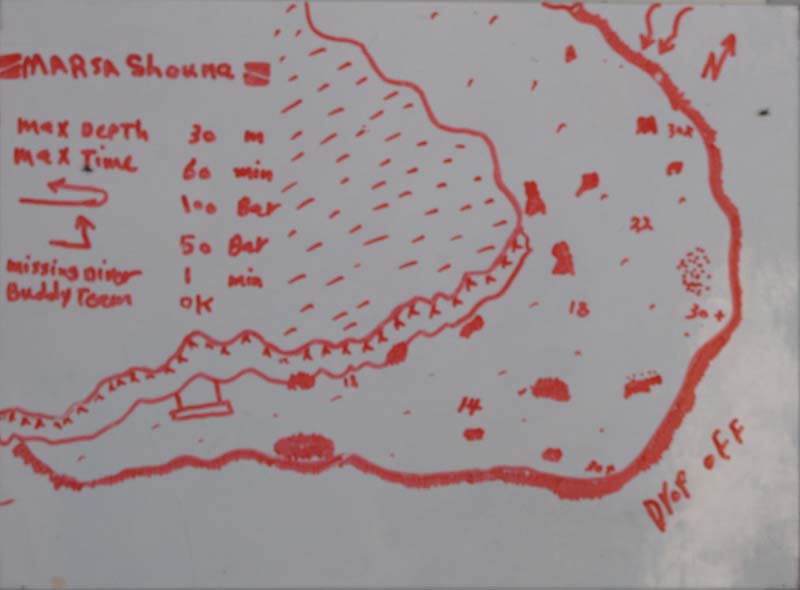 MARSA Shouna
N
max DEPTH 30 m
max Time 60 min
100 Bar
50 Bar
missing Diver 1 min
Buddy Team OK
30+
22
18
30+
12
14
Drop off